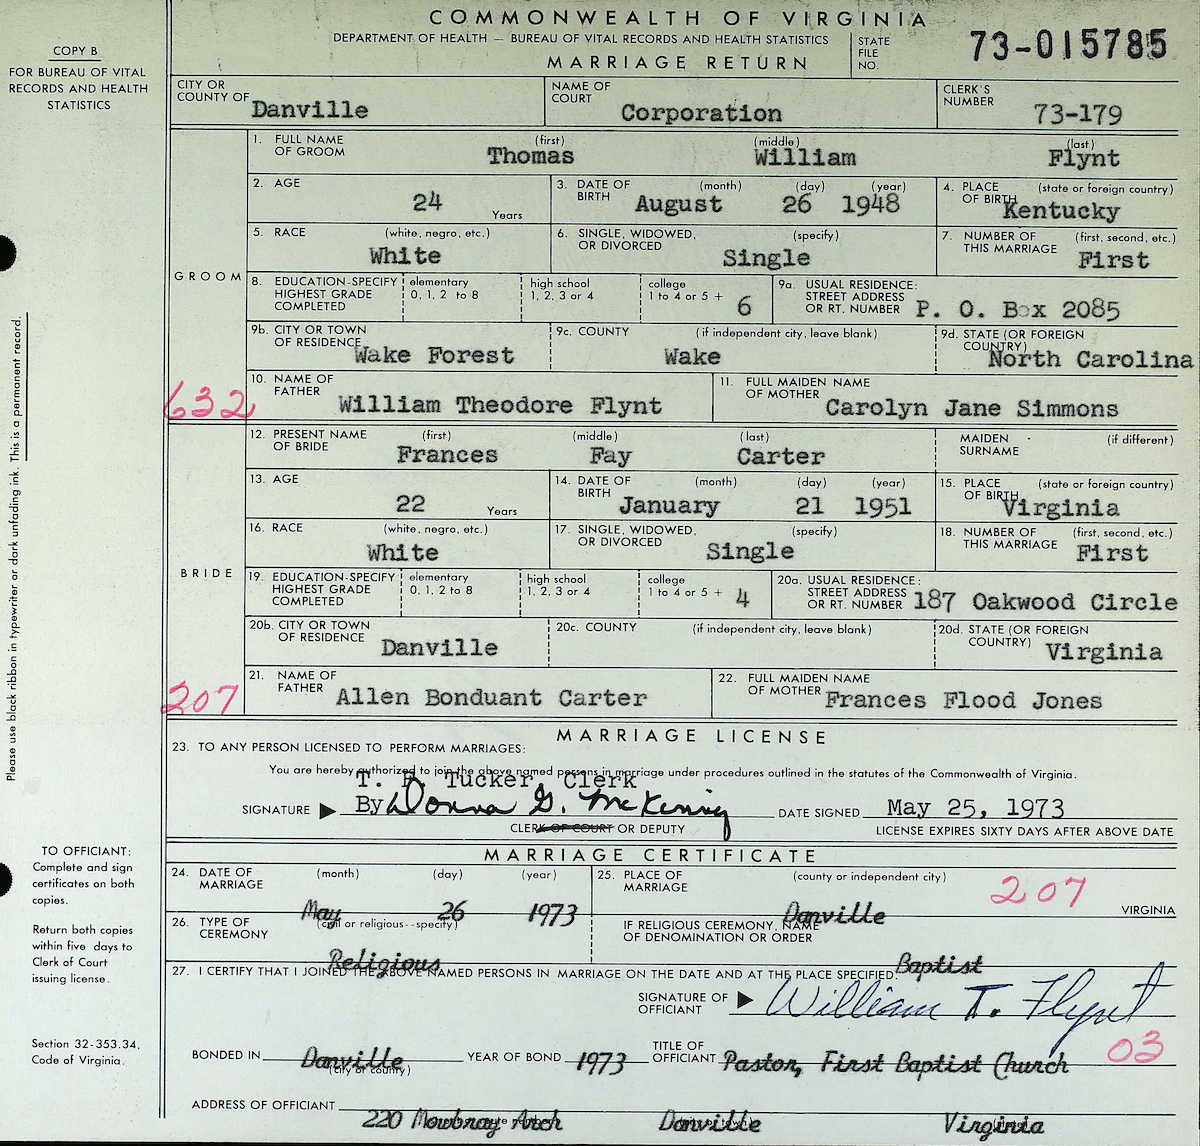 COMMONWEALTH OF VIRGINIA
DEPARTMENT OF HEALTH — BUREAU OF VITAL RECORDS AND HEALTH STATISTICS
MARRIAGE RETURN
STATE FILE NO. 73-015785
COPY B
FOR BUREAU OF VITAL
RECORDS AND HEALTH
STATISTICS
CITY OR COUNTY OF Danville
NAME OF COURT Corporation
CLERK'S NUMBER 73-179
GROOM
1. FULL NAME OF GROOM (first) Thomas (middle) William (last) Flynt
2. AGE 24 Years
3. DATE OF BIRTH (month) August (day) 26 (year) 1948
4. PLACE OF BIRTH (state or foreign country) Kentucky
5. RACE (white, negro, etc.) White
6. SINGLE, WIDOWED, OR DIVORCED (specify) Single
7. NUMBER OF THIS MARRIAGE (first, second, etc.) First
8. EDUCATION-SPECIFY HIGHEST GRADE COMPLETED elementary 0, 1, 2 to 8 high school 1, 2, 3 or 4 college 1 to 4 or 5 + 6
9a. USUAL RESIDENCE: STREET ADDRESS OR RT. NUMBER P. O. Box 2085
9b. CITY OR TOWN OF RESIDENCE Wake Forest
9c. COUNTY (if independent city, leave blank) Wake
9d. STATE (OR FOREIGN COUNTRY) North Carolina
10. NAME OF FATHER William Theodore Flynt
11. FULL MAIDEN NAME OF MOTHER Carolyn Jane Simmons
632
BRIDE
12. PRESENT NAME OF BRIDE (first) Frances (middle) Fay (last) Carter
MAIDEN SURNAME (if different)
13. AGE 22 Years
14. DATE OF BIRTH (month) January (day) 21 (year) 1951
15. PLACE OF BIRTH (state or foreign country) Virginia
16. RACE (white, negro, etc.) White
17. SINGLE, WIDOWED, OR DIVORCED (specify) Single
18. NUMBER OF THIS MARRIAGE (first, second, etc.) First
19. EDUCATION-SPECIFY HIGHEST GRADE COMPLETED elementary 0, 1, 2 to 8 high school 1, 2, 3 or 4 college 1 to 4 or 5 + 4
20a. USUAL RESIDENCE: STREET ADDRESS OR RT. NUMBER 187 Oakwood Circle
20b. CITY OR TOWN OF RESIDENCE Danville
20c. COUNTY (if independent city, leave blank)
20d. STATE (OR FOREIGN COUNTRY) Virginia
21. NAME OF FATHER Allen Bonduant Carter
22. FULL MAIDEN NAME OF MOTHER Frances Flood Jones
207
Please use black ribbon in typewriter or dark unfading ink. This is a permanent record.
MARRIAGE LICENSE
23. TO ANY PERSON LICENSED TO PERFORM MARRIAGES:
You are hereby authorized to join the above named persons in marriage under procedures outlined in the statutes of the Commonwealth of Virginia.
T. F. Tucker, Clerk
SIGNATURE By Donna G. McKinney DATE SIGNED May 25, 1973
CLERK OF COURT OR DEPUTY
LICENSE EXPIRES SIXTY DAYS AFTER ABOVE DATE
MARRIAGE CERTIFICATE
TO OFFICIANT:
Complete and sign
certificates on both
copies.
Return both copies
within five days to
Clerk of Court
issuing license.
Section 32-353.34,
Code of Virginia.
24. DATE OF MARRIAGE (month) May (day) 26 (year) 1973
25. PLACE OF MARRIAGE (county or independent city) Danville 207 VIRGINIA
26. TYPE OF CEREMONY (civil or religious--specify) Religious
IF RELIGIOUS CEREMONY, NAME OF DENOMINATION OR ORDER Baptist
27. I CERTIFY THAT I JOINED THE ABOVE NAMED PERSONS IN MARRIAGE ON THE DATE AND AT THE PLACE SPECIFIED.
SIGNATURE OF OFFICIANT William T. Flynt
03
BONDED IN Danville (city or county) YEAR OF BOND 1973 TITLE OF OFFICIANT Pastor, First Baptist Church
ADDRESS OF OFFICIANT 220 Mowbray Arch Danville Virginia